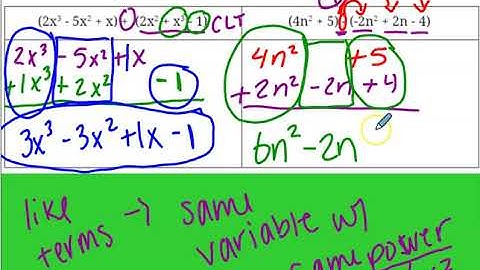 (2x³ - 5x² + x) + (2x² + x³ - 1) CLT
2x³ - 5x² + 1x
+1x³ + 2x² -1
3x³ - 3x² + 1x - 1
(4n² + 5) - (-2n² + 2n - 4)
4n² + 5
+ 2n² - 2n + 4
6n² - 2n
like terms → same
variable w/
same power